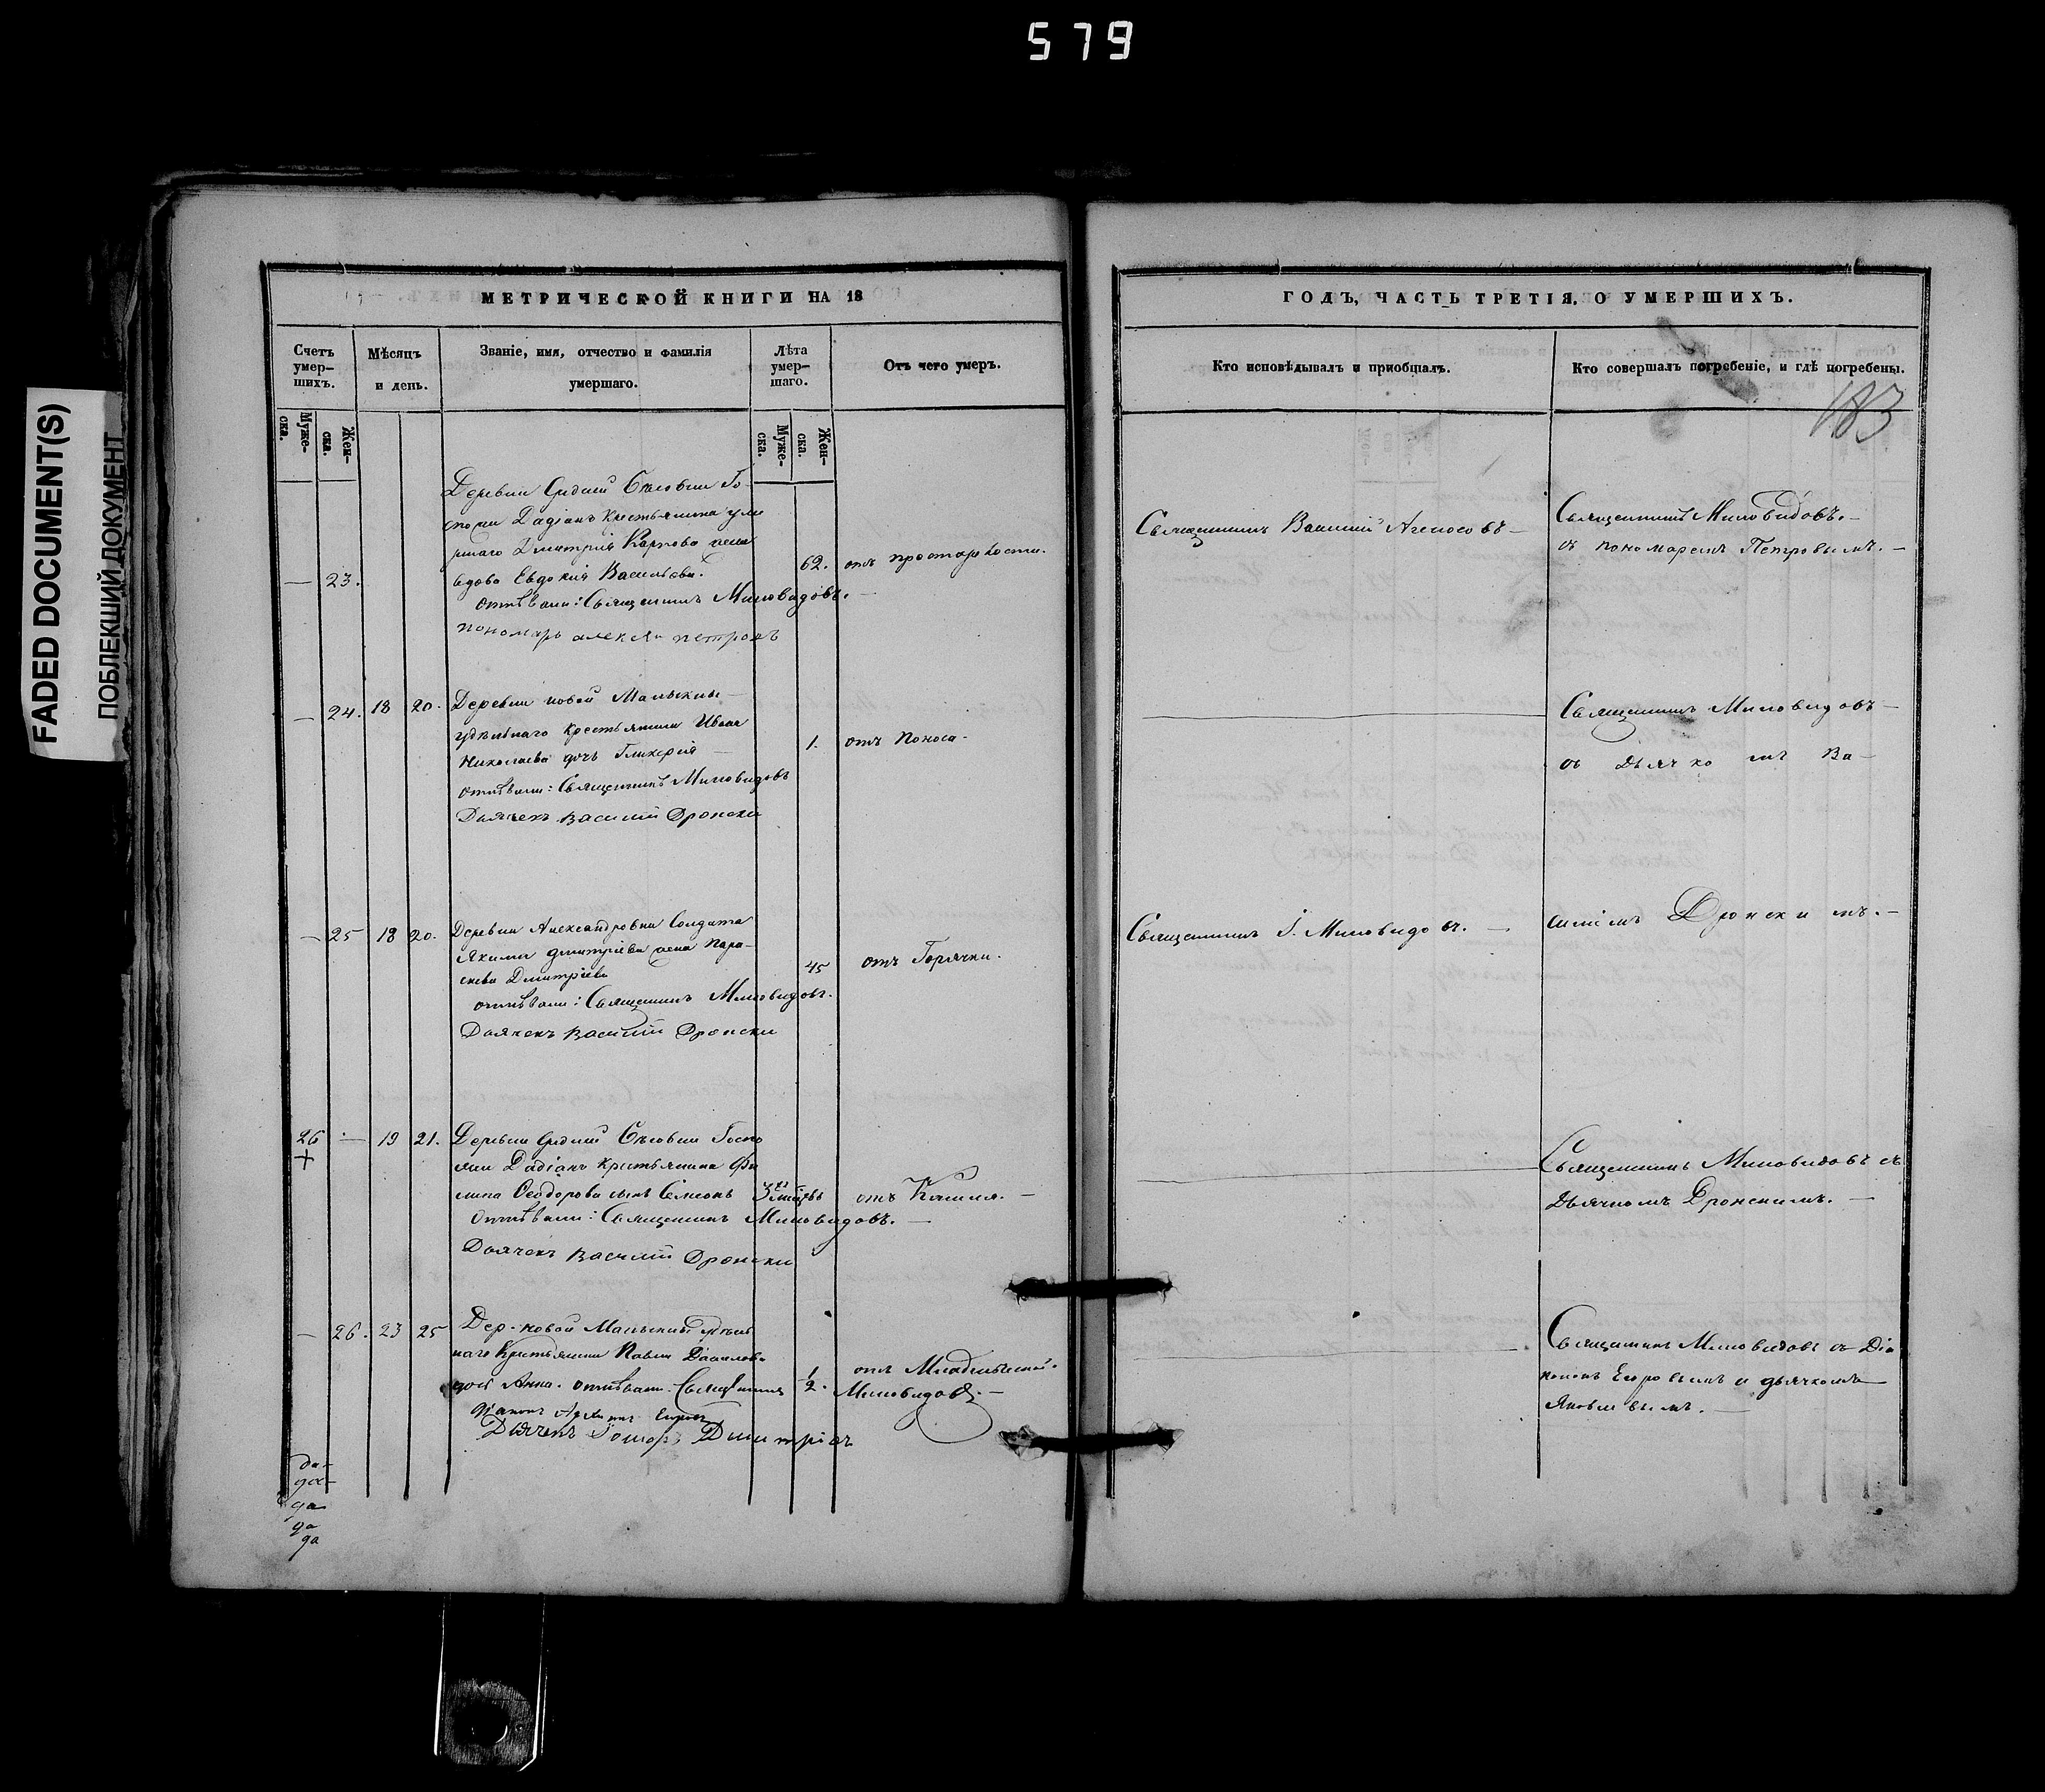 579
FADED DOCUMENT(S)
ПОБЛЕКШИЙ ДОКУМЕНТ
МЕТРИЧЕСКОЙ КНИГИ НА 18
Счетъ умер-шихъ.
Мѣсяцъ и день.
Званіе, имя, отчество и фамилія умершаго.
Лѣта умер-шаго.
Отъ чего умеръ.
Муже-ска.
Жен-ска.
Муже-ска.
Жен-ска.
Деревни Средней Го-
спожи Дадіанъ крестьянина уме
ршаго Дмитрія Карпова жена
— 23. вдова Евдокія Васильева. 62. отъ престарѣлости.
отпѣвали: Священникъ Миловидовъ. —
пономарь алексѣи петровъ
— 24. 18 20. Деревни новой Малыклы —
удѣльнаго крестьянина Ивана
Николаева дочь Гликерія — 1. отъ поноса.
отпѣвали: Священникъ Миловидовъ
Дьячекъ Василій Дронски
— 25 18 20. Деревни Александровки Солдата
Якима Дмитріева жена Пара-
скева Дмитріева 45 отъ Горячки.
отпѣвали: Священникъ Миловидовъ.
Дьячекъ Василій Дронски
26 — 19 21. Деревни Средней Госпо
жи Дадіанъ крестьянина Фи
липа Ѳеодорова сынъ Семіонъ 3 отъ Кашля. —
отпѣвали: Священникъ Миловидовъ. —
Дьячекъ Василій Дронски
— 26. 23 25 Дер. новой Малыклы удѣль
наго Крестьянина Павла Данилова
дочь Анна. отпѣвали: Священникъ 1/2. отъ Младенческой.
Миловидовъ. —
Діаконъ Егоровъ
Дьячекъ Дмитріевъ
да
да
да
да
да
ГОДЪ, ЧАСТЬ ТРЕТІЯ, О УМЕРШИХЪ.
Кто исповѣдывалъ и пріобщалъ.
Кто совершалъ погребеніе, и гдѣ погребены.
183
Священникъ Василій —
Священникъ Миловидовъ. —
съ пономаремъ Петровымъ. —
Священникъ Миловидовъ —
съ дьячкомъ Ва-
Священникъ І. Миловидовъ. —
силіемъ Дронскимъ. —
Священникъ Миловидовъ съ
Дьячкомъ Дронскимъ. —
Священникъ Миловидовъ съ Діа
кономъ Егоровымъ и дьячкомъ
Яковлевымъ. —